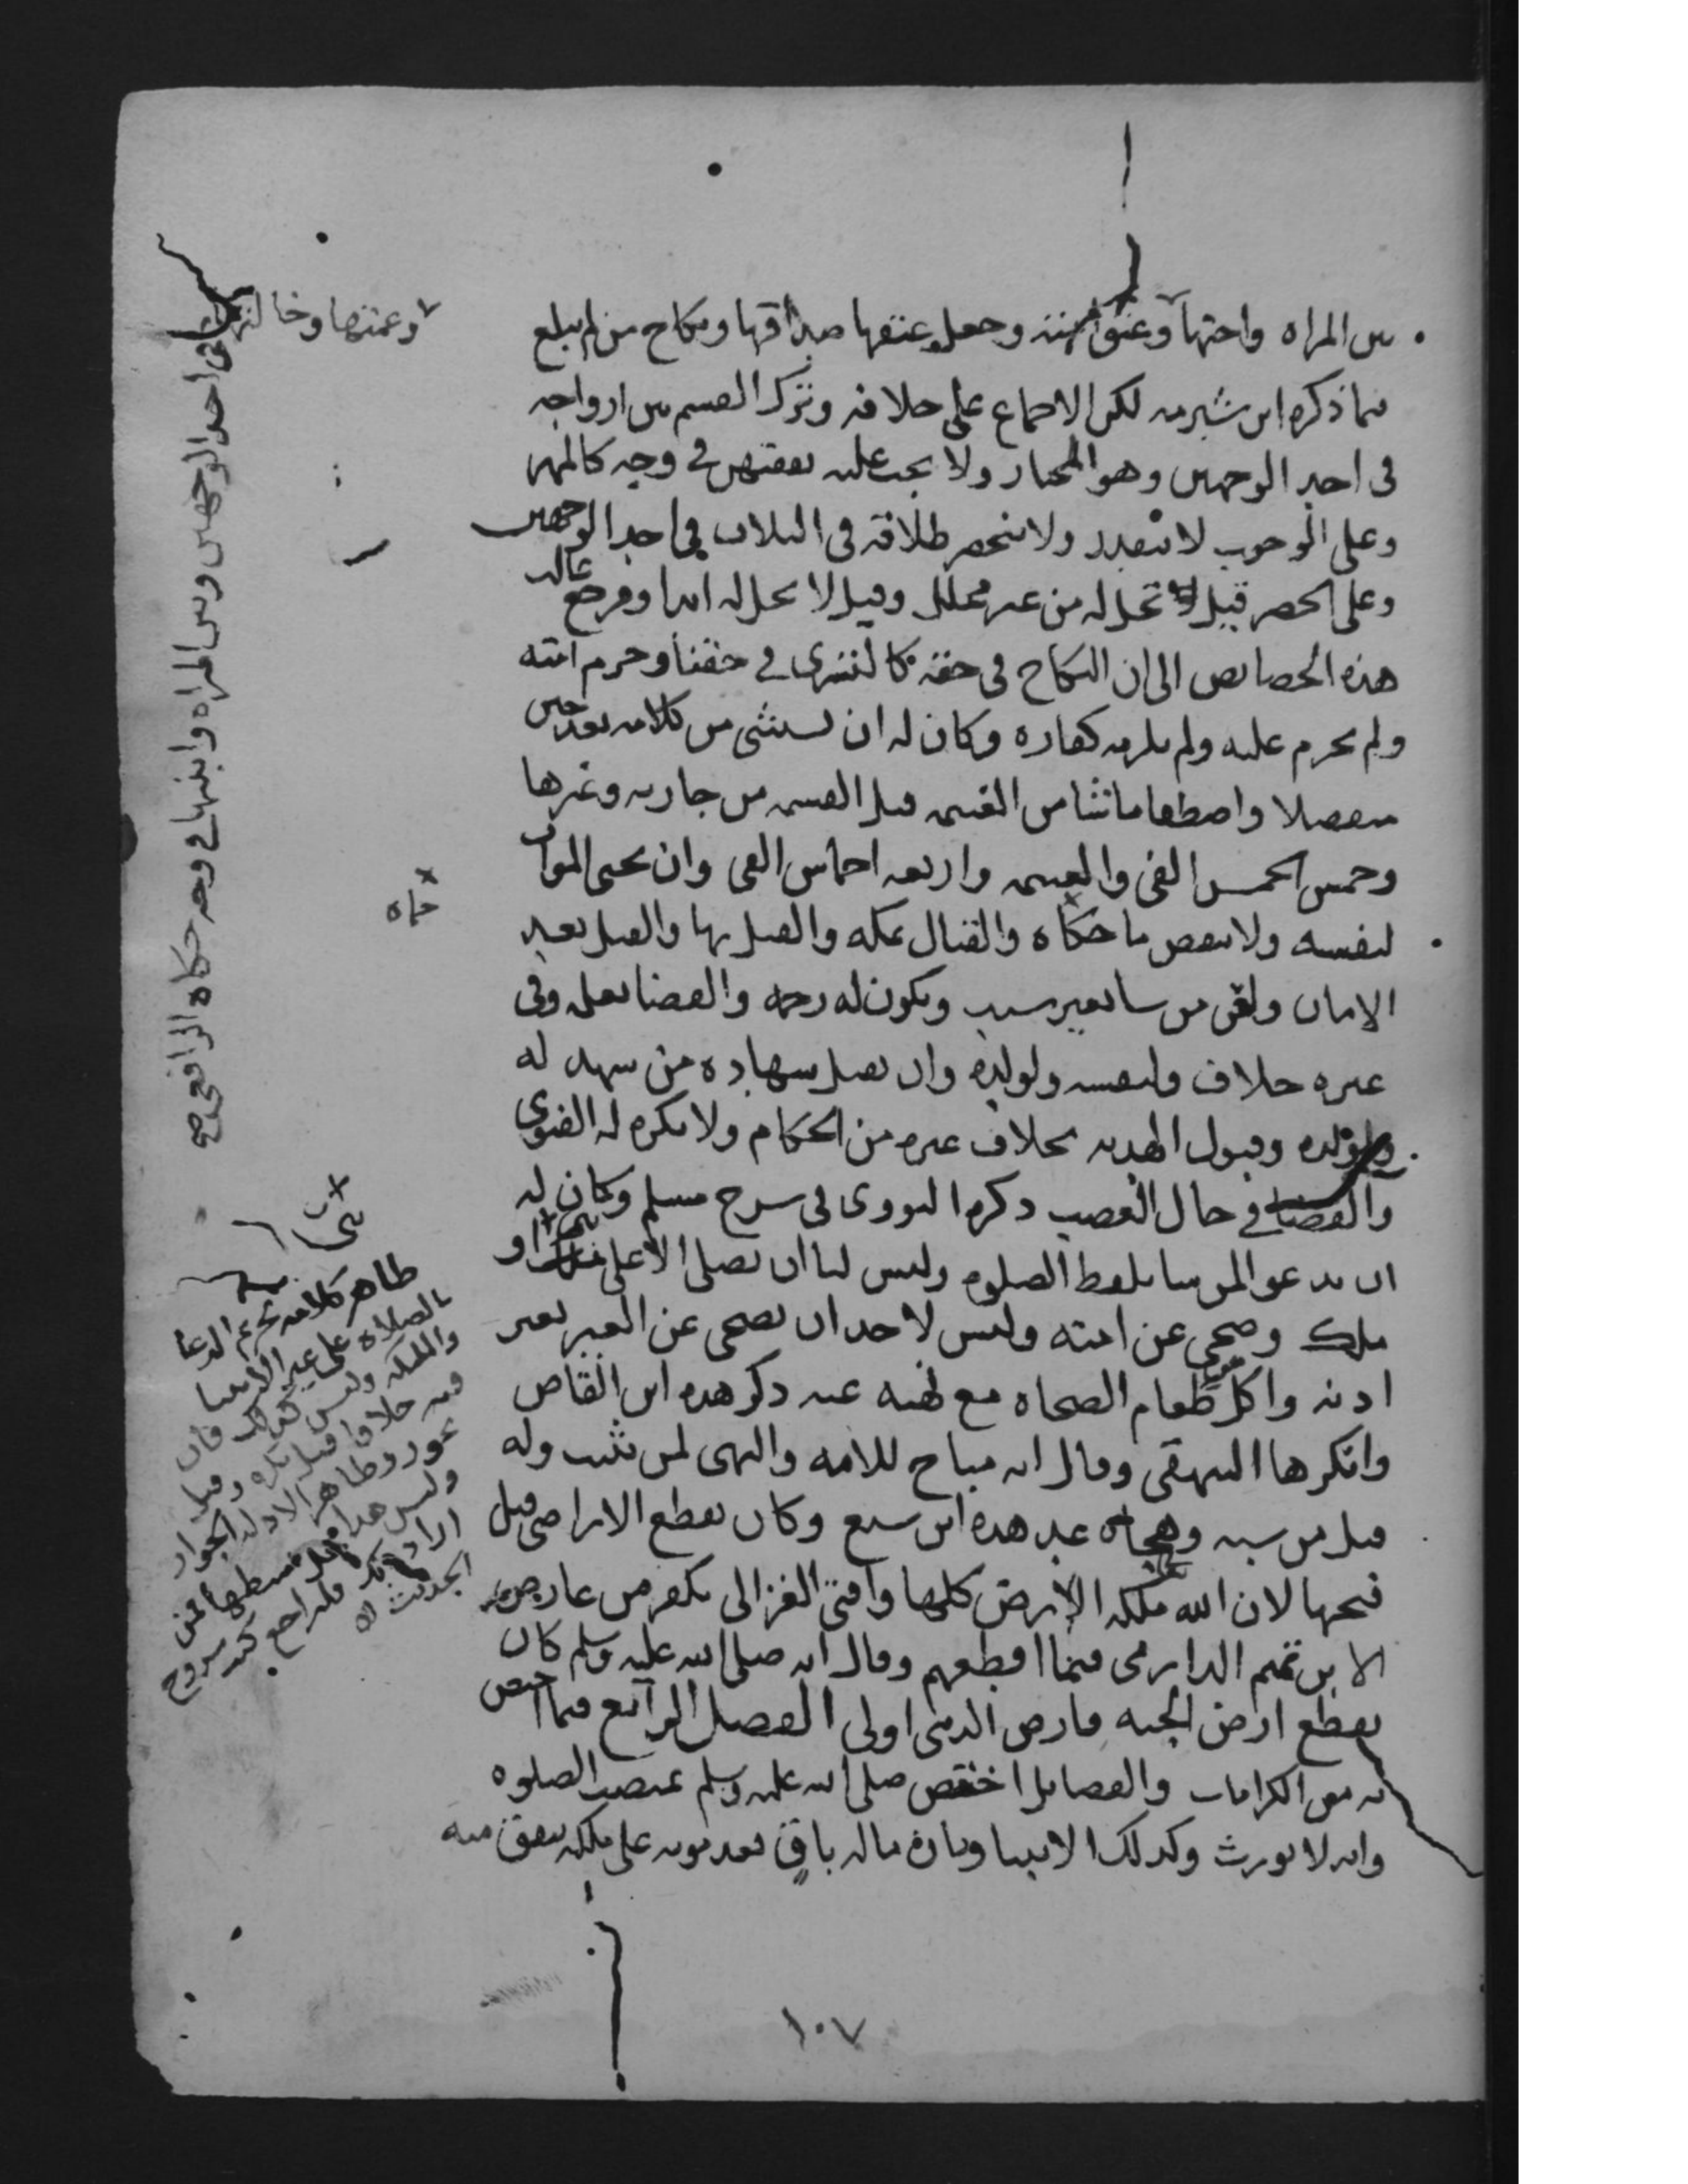 بين المراه واختها وعتق امته وجعل عتقها صداقها ونكاح من لم تبلغ
فيما ذكره ابن شبرمه لكن الاجماع على خلافه وترك القسم بين ازواجه
في احد الوجهين وهو المختار ولا يجب عليه نفقتهن في وجه كالمهر
وعلى الوجوب لا يتقدر ولا ينحصر طلاقه في الثلاث في احد الوجهين
وعلى الحصر قيل تحل له من غير محلل وقيل لا تحل له ابدا ومرجع غالب
هذه الخصايص الى ان النكاح في حقه كالتسرى في حقنا وحرم امته
ولم تحرم عليه ولم يلزمه كفاره وكان له ان يستثنى من كلامه بعد حين
منفصلا واصطفا ما شا من الغنيمه قبل القسمه من جاريه وغيرها
وخمس الخمس الفي والغنيمه واربعه اخماس الفي وان يحمى الموات
لنفسه ولا ينقض ما حماه والقتال بمكه والقتل بها والقتل بعد
الامان ولعن من شا بغير سبب ويكون له رحمه والقضا بعلمه وفي
غيره خلاف ولنفسه ولولده وان يقبل شهاده من شهد له
ولولده وقبول الهديه بخلاف غيره من الحكام ولا يكره له الفتوى
والقضا في حال الغضب ذكره النووى في شرح مسلم وكان له
ان يدعو لمن شا بلفظ الصلوه وليس لنا ان نصلى الا على نبي او
ملك وضحى عن امته وليس لاحد ان يضحى عن الغير بغير
اذنه واكل طعام الفجاه مع نهيه عنه ذكر هذه ابن القاص
وانكرها البيهقى وقال انه مباح للامه والنهى لم يثبت وله
قتل من سبه وهجاه عد هذه ابن سبع وكان يقطع الاراضي قبل
فتحها لان الله ملكه الارض كلها وافتى الغزالى بكفر من عارض
الا بن تميم الدارمى فيما اقطعهم وقال انه صلى الله عليه وسلم كان
يقطع ارض الجنه فارض الدنيا اولى الفصل الرابع فيما اختص
به من الكرامات والفضايل اختص صلى الله عليه وسلم بمنصب الصلوه
وانه لا يورث وكذلك الانبيا وبان ماله باق بعد موته على ملكه ينفق منه
وعمتها وخالتها
في احد الوجهين وبين المراه وابنتها في وجه حكاه الرافعى صح
حماه
نبي
ظاهر كلامه تحريم الدعا
بالصلاه على غير الانبيا
والملايكه وليس كذلك فان
فيه خلافا قيل يكره وقيل
يجوز وظاهر الادله الجواز
وليس هذا
اراد فليراجع كتب شروح
الحديث اه
١٠٧